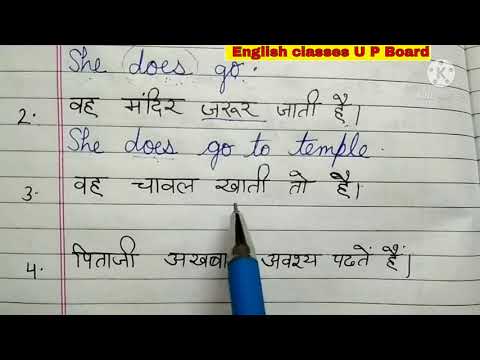 English classes U P Board
She does go.
2. वह मंदिर ज़रूर जाती है।
She does go to temple.
3. वह चावल खाती तो है।
4. पिताजी अवश्य पढतें हैं।